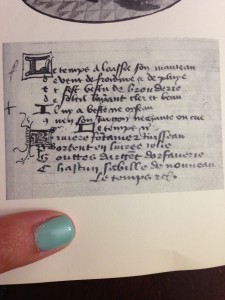 Le temps a laissie son manteau
De vent de froidure et de pluye
Et sest vestu de brouderie
De soleil luyant cler et beau
Il ny a beste ne oyseau
Quen son jargon ne chante ou crie
Le temps &c
Riviere fontaine et ruisseau
Portent en livree jolie
Gouttes dargent dorfaverie
Chascun sabille de nouveau
Le temps &c